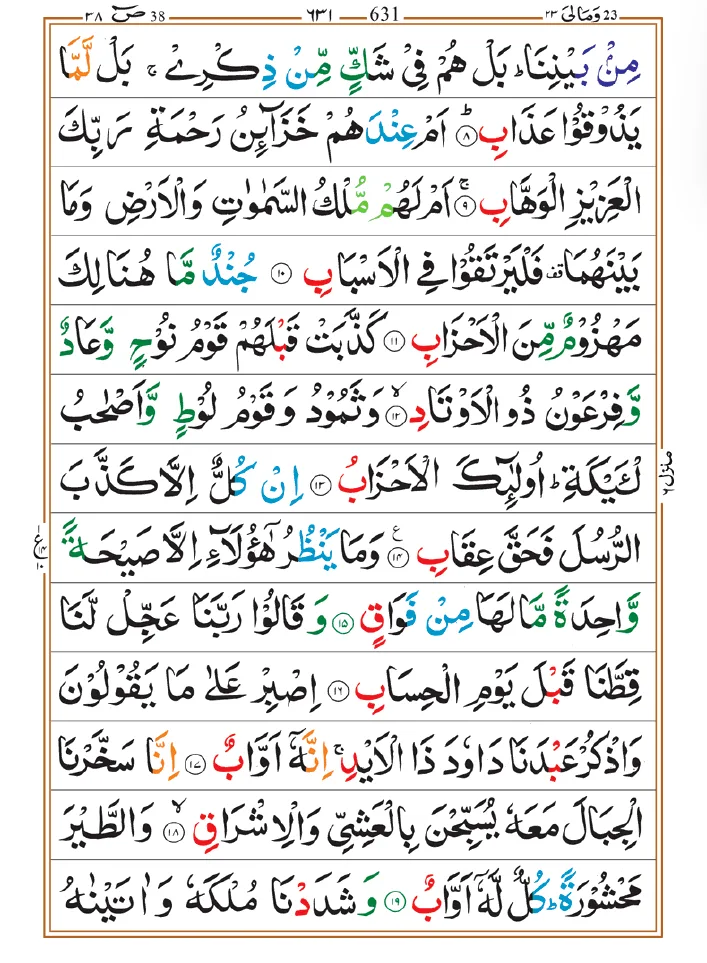 23 وَمَالِیَ ٢٣ 631 ٦٣١ 38 صٓ ٣٨
مِنْۢ بَيْنِنَا ؕ بَلْ هُمْ فِىْ شَكٍّ مِّنْ ذِكْرِىْ ۚ بَلْ لَّمَّا
يَذُوْقُوْا عَذَابِ ؕ‏ ﴿۸﴾ اَمْ عِنْدَهُمْ خَزَآٮِٕنُ رَحْمَةِ رَبِّكَ
الْعَزِيْزِ الْوَهَّابِ‌ ۚ‏ ﴿۹﴾ اَمْ لَهُمْ مُّلْكُ السَّمٰوٰتِ وَالْاَرْضِ وَمَا
بَيْنَهُمَا ۟ فَلْيَرْتَقُوْا فِى الْاَسْبَابِ‏ ﴿۱۰﴾ جُنْدٌ مَّا هُنَالِكَ
مَهْزُوْمٌ مِّنَ الْاَحْزَابِ‏ ﴿۱۱﴾ كَذَّبَتْ قَبْلَهُمْ قَوْمُ نُوْحٍ وَّعَادٌ
وَّفِرْعَوْنُ ذُو الْاَوْتَادِۙ‏ ﴿۱۲﴾ وَثَمُوْدُ وَقَوْمُ لُوْطٍ وَّاَصْحٰبُ
لْــَٔيْكَةِ‌ ؕ اُولٰٓٮِٕكَ الْاَحْزَابُ‏ ﴿۱۳﴾ اِنْ كُلٌّ اِلَّا كَذَّبَ
الرُّسُلَ فَحَقَّ عِقَابِ‏ ﴿۱۴﴾ ع وَمَا يَنْظُرُ هٰٓؤُلَآءِ اِلَّا صَيْحَةً
وَّاحِدَةً مَّا لَهَا مِنْ فَوَاقٍ‏ ﴿۱۵﴾ وَقَالُوْا رَبَّنَا عَجِّلْ لَّنَا
قِطَّنَا قَبْلَ يَوْمِ الْحِسَابِ‏ ﴿۱۶﴾ اِصْبِرْ عَلٰى مَا يَقُوْلُوْنَ
وَاذْكُرْ عَبْدَنَا دَاوٗدَ ذَا الْاَيْدِ‌ ۚ اِنَّـهٗۤ اَوَّابٌ‏ ﴿۱۷﴾ اِنَّا سَخَّرْنَا
الْجِبَالَ مَعَهٗ يُسَبِّحْنَ بِالْعَشِىِّ وَالْاِشْرَاقِۙ‏ ﴿۱۸﴾ وَالطَّيْرَ
مَحْشُوْرَةً ؕ كُلٌّ لَّـهٗۤ اَوَّابٌ‏ ﴿۱۹﴾ وَشَدَدْنَا مُلْكَهٗ وَاٰتَيْنٰهُ
منزل ٦
ع ١٤ ١٠